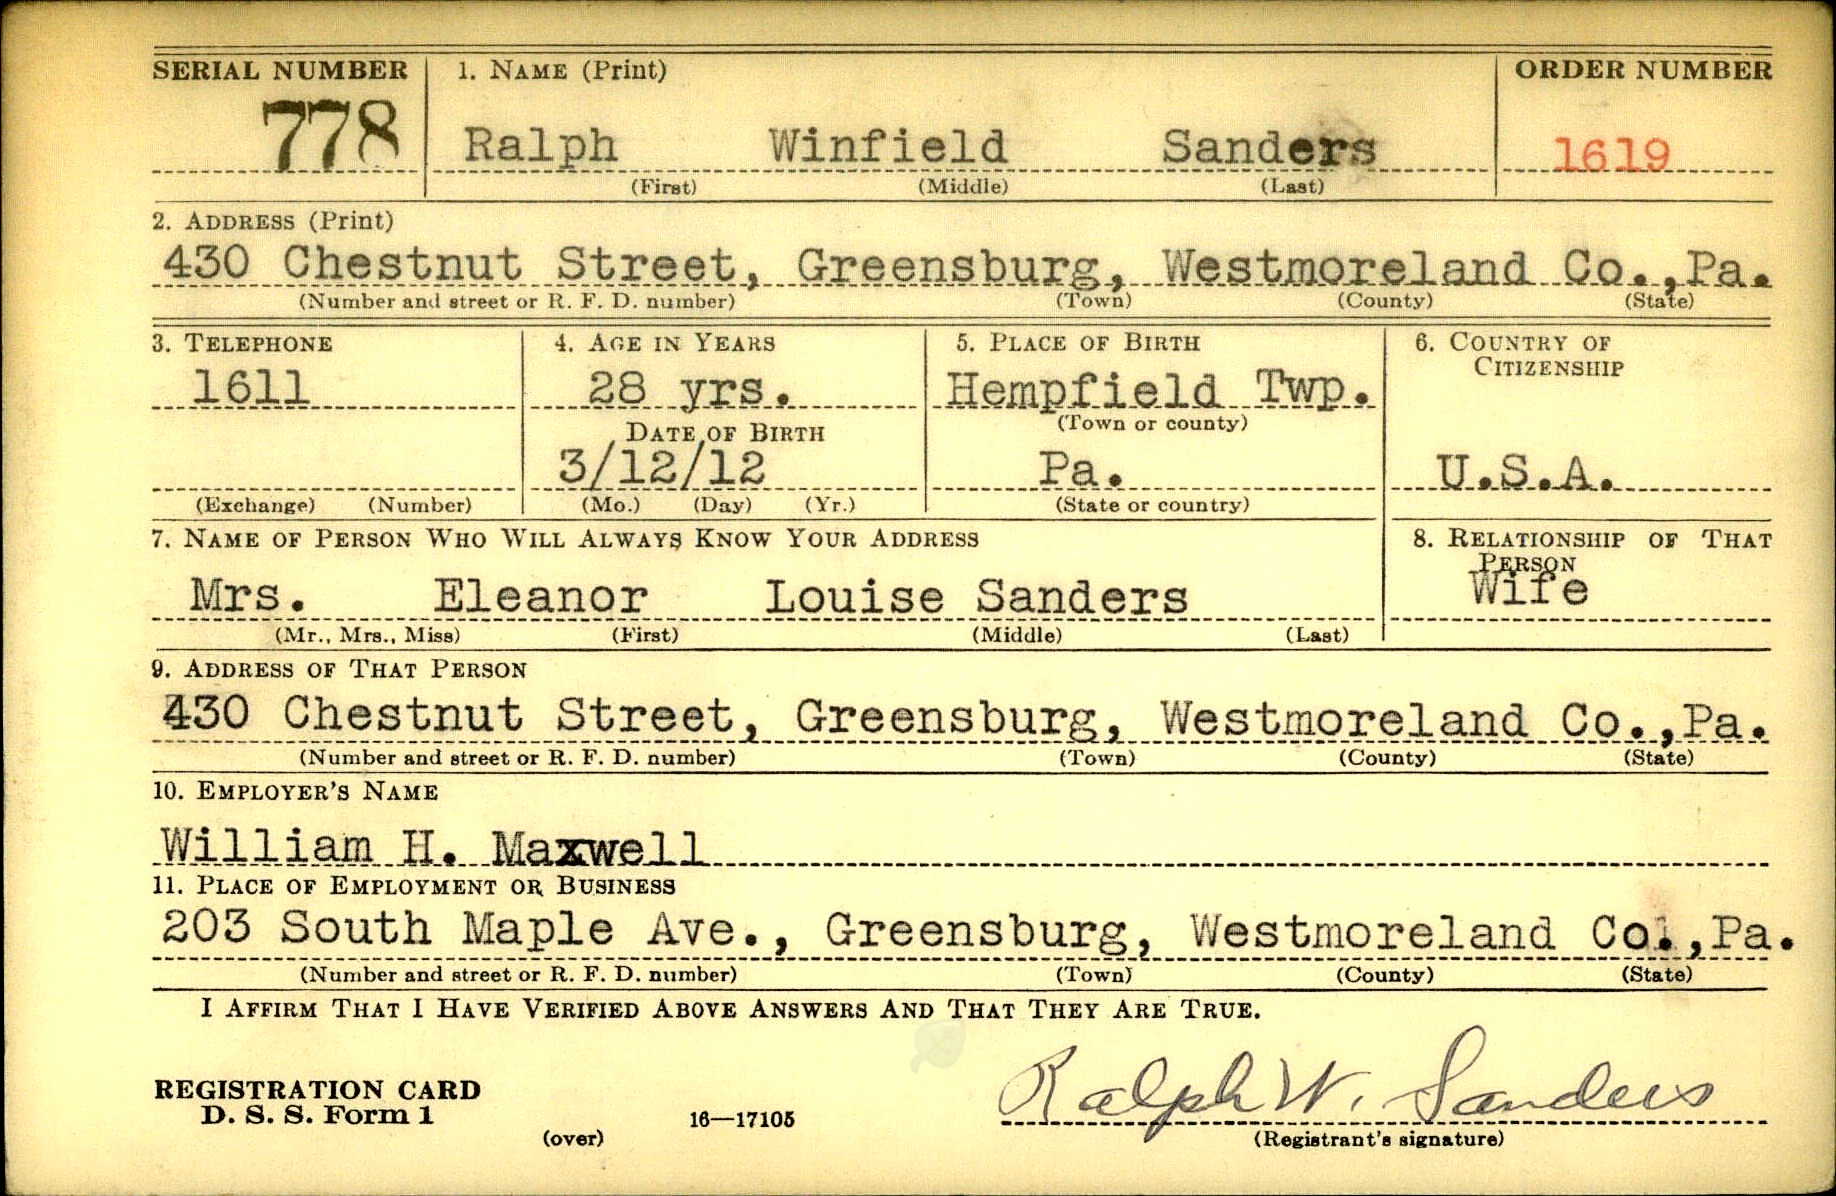 SERIAL NUMBER 1. NAME (Print) ORDER NUMBER
778 Ralph Winfield Sanders 1619
(First) (Middle) (Last)
2. ADDRESS (Print)
430 Chestnut Street, Greensburg, Westmoreland Co.,Pa.
(Number and street or R. F. D. number) (Town) (County) (State)
3. TELEPHONE 4. AGE IN YEARS 5. PLACE OF BIRTH 6. COUNTRY OF
CITIZENSHIP
1611 28 yrs. Hempfield Twp.
DATE OF BIRTH (Town or county)
3/12/12 Pa. U.S.A.
(Exchange) (Number) (Mo.) (Day) (Yr.) (State or country)
7. NAME OF PERSON WHO WILL ALWAYS KNOW YOUR ADDRESS 8. RELATIONSHIP OF THAT
PERSON
Mrs. Eleanor Louise Sanders Wife
(Mr., Mrs., Miss) (First) (Middle) (Last)
9. ADDRESS OF THAT PERSON
430 Chestnut Street, Greensburg, Westmoreland Co.,Pa.
(Number and street or R. F. D. number) (Town) (County) (State)
10. EMPLOYER'S NAME
William H. Maxwell
11. PLACE OF EMPLOYMENT OR BUSINESS
203 South Maple Ave., Greensburg, Westmoreland Co.,Pa.
(Number and street or R. F. D. number) (Town) (County) (State)
I AFFIRM THAT I HAVE VERIFIED ABOVE ANSWERS AND THAT THEY ARE TRUE.
REGISTRATION CARD
D. S. S. Form 1 16—17105 Ralph W. Sanders
(over) (Registrant's signature)